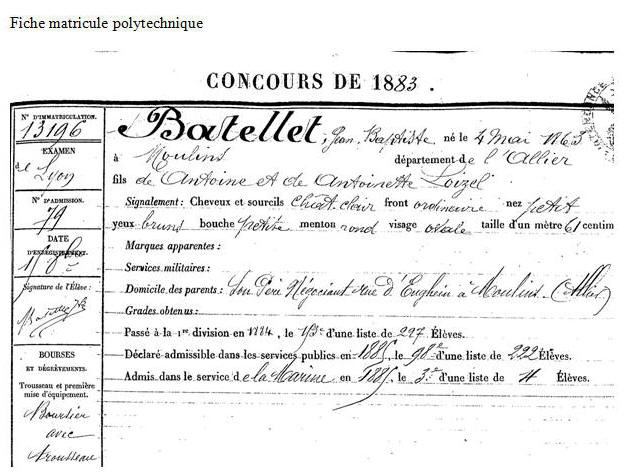 Fiche matricule polytechnique
CONCOURS DE 1883.
N° D'IMMATRICULATION.
13196
EXAMEN
de Lyon
N° D'ADMISSION.
79
DATE
D'ENREGISTREMENT.
Signature de l'Élève :
BOURSES
ET DÉGRÈVEMENTS.
Trousseau et première
mise d'équipement.
Boursier
avec
Trousseau
Batellet, Jean Baptiste né le 4 Mai 1863
à Moulins département de l'Allier
fils de Antoine et de Antoinette Loizel
Signalement : Cheveux et sourcils chat. clair front ordinaire nez petit
yeux bruns bouche petite menton rond visage ovale taille d'un mètre 61 centim
Marques apparentes :
Services militaires :
Domicile des parents : Son Père Négociant rue d'Enghein à Moulins (Allier)
Grades obtenus :
Passé à la 1re division en 1884, le d'une liste de 227 Élèves.
Déclaré admissible dans les services publics en 1885, le 98e d'une liste de 222 Élèves.
Admis dans le service de la Marine en 1885, le 3e d'une liste de 4 Élèves.